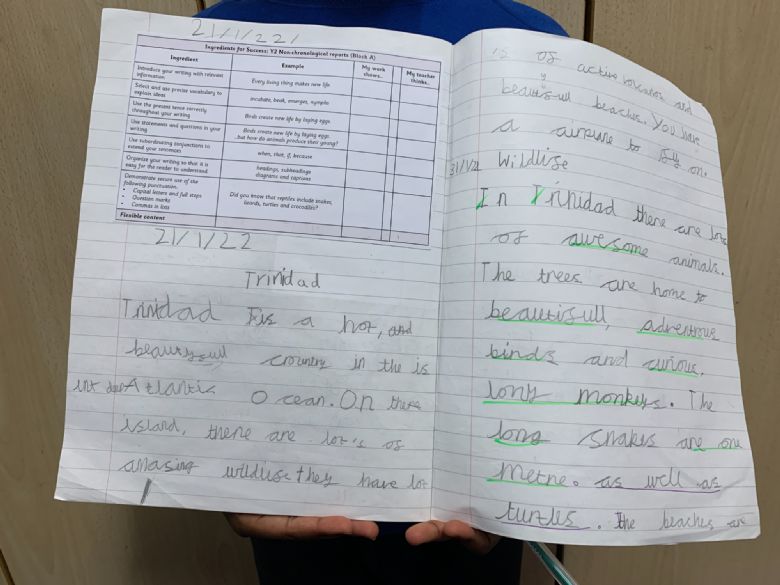 21/1/22
Ingredients for Success: Y2 Non-chronological reports (Block A)
Ingredient Example My work shows... My teacher thinks...
Introduce your writing with relevant information Every living thing makes new life
Select and use precise vocabulary to explain ideas incubate, beak, emerges, nymphs
Use the present tense correctly throughout your writing Birds create new life by laying eggs
Use statements and questions in your writing Birds create new life by laying eggs ...but how do animals produce their young?
Use subordinating conjunctions to extend your sentences when, that, if, because
Organise your writing so that it is easy for the reader to understand headings, subheadings diagrams and captions
Demonstrate secure use of the following punctuation.
• Capital letters and full steps
• Question marks
• Commas in lists
Did you know that reptiles include snakes, lizards, turtles and crocodiles?
Flexible content
21/1/22
Trinidad
Trinidad is a hot, and
country in the
Atlantic Ocean. On there
island, there are lot's of
amasing wildlife they have lot
is of active volcanos and
beautyfull beaches. You have
a to fly on.
31/1/22 Wildlife
In Trinidad there are lots
of awesome animals.
The trees are home to
beautifull, adventrous
birds and curious,
long monkeys. The
long snakes are one
metre. as well as
turtles. The beaches are